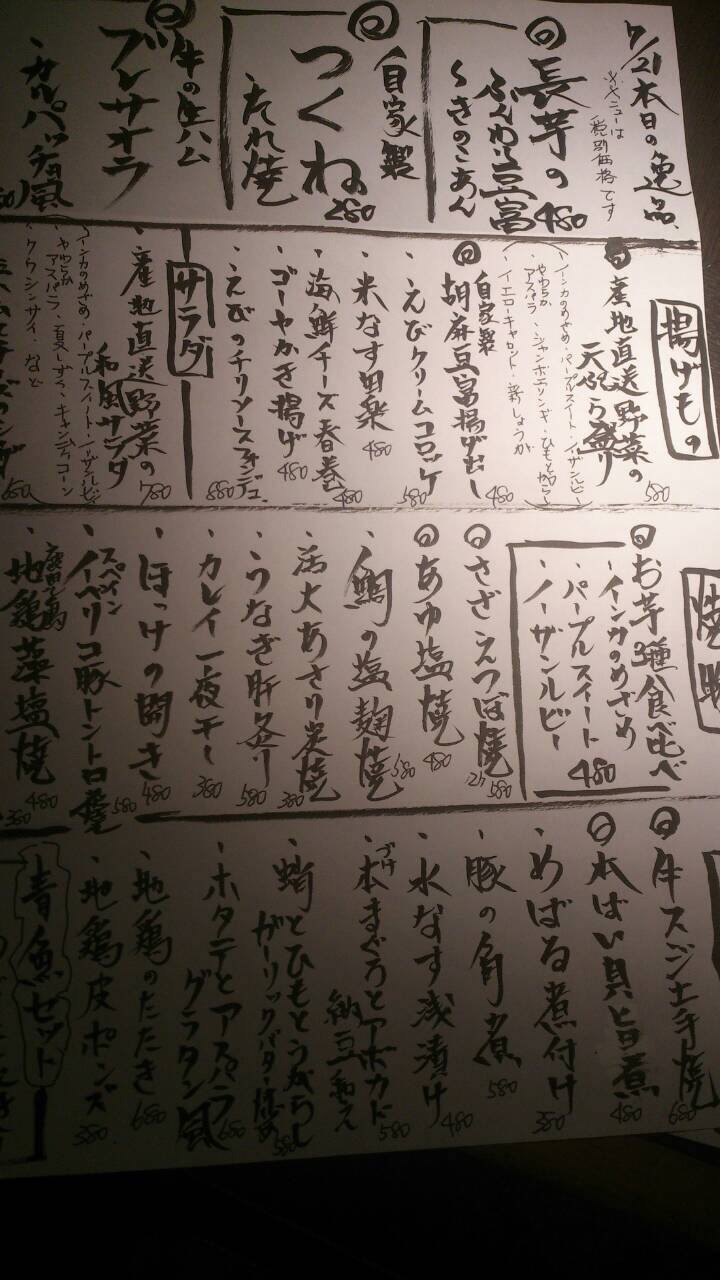 7/21 本日の逸品
※メニューは
税別価格です
長芋の
ふんわり豆富
〜きのこあん
480
自家製
つくね
たれ焼
280
牛の生ハム
ブレサオラ
カルパッチョ風
揚げもの
産地直送野菜の
天ぷら盛り
580
インカのめざめ・パープルスイート・ノーザンルビー
やわらかアスパラ・ジャンボエリンギ・ひもとうがらし
イエローキャロット・新しょうが
自家製
胡麻豆富揚げ出し
480
・えびクリームコロッケ
580
・米なす田楽
480
・海鮮チーズ春巻
480
・ゴーヤかき揚げ
480
・えびのチリソースフォンデュ
880
サラダ
・産地直送野菜の
和風サラダ
780
インカのめざめ・パープルスイート・ノーザンルビー
やわらかアスパラ・夏レタス・キャンディコーン
クウシンサイ・など
お芋3種食べ比べ
・インカのめざめ
・パープルスイート
・ノーザンルビー
480
さざえつぼ焼
580
あゆ塩焼
480
・鯛の塩麹焼
580
・活大あさり炭焼
380
・うなぎ肝炙り
580
・カレイ一夜干し
380
・ほっけの開き
480
・スペイン
イベリコ豚トントロ炙
580
・地鶏藻塩焼
480
牛スジ土手焼
680
本ばい貝旨煮
480
・めばる煮付け
380
・豚の角煮
580
・水なす浅漬け
480
・づけ
本まぐろとアボカド
納豆和え
580
・蛸とひもとうがらし
ガーリックバター炒め
580
・ホタテとアスパラ
グラタン風
680
・地鶏のたたき
680
・地鶏皮ポンズ
380
青魚セット